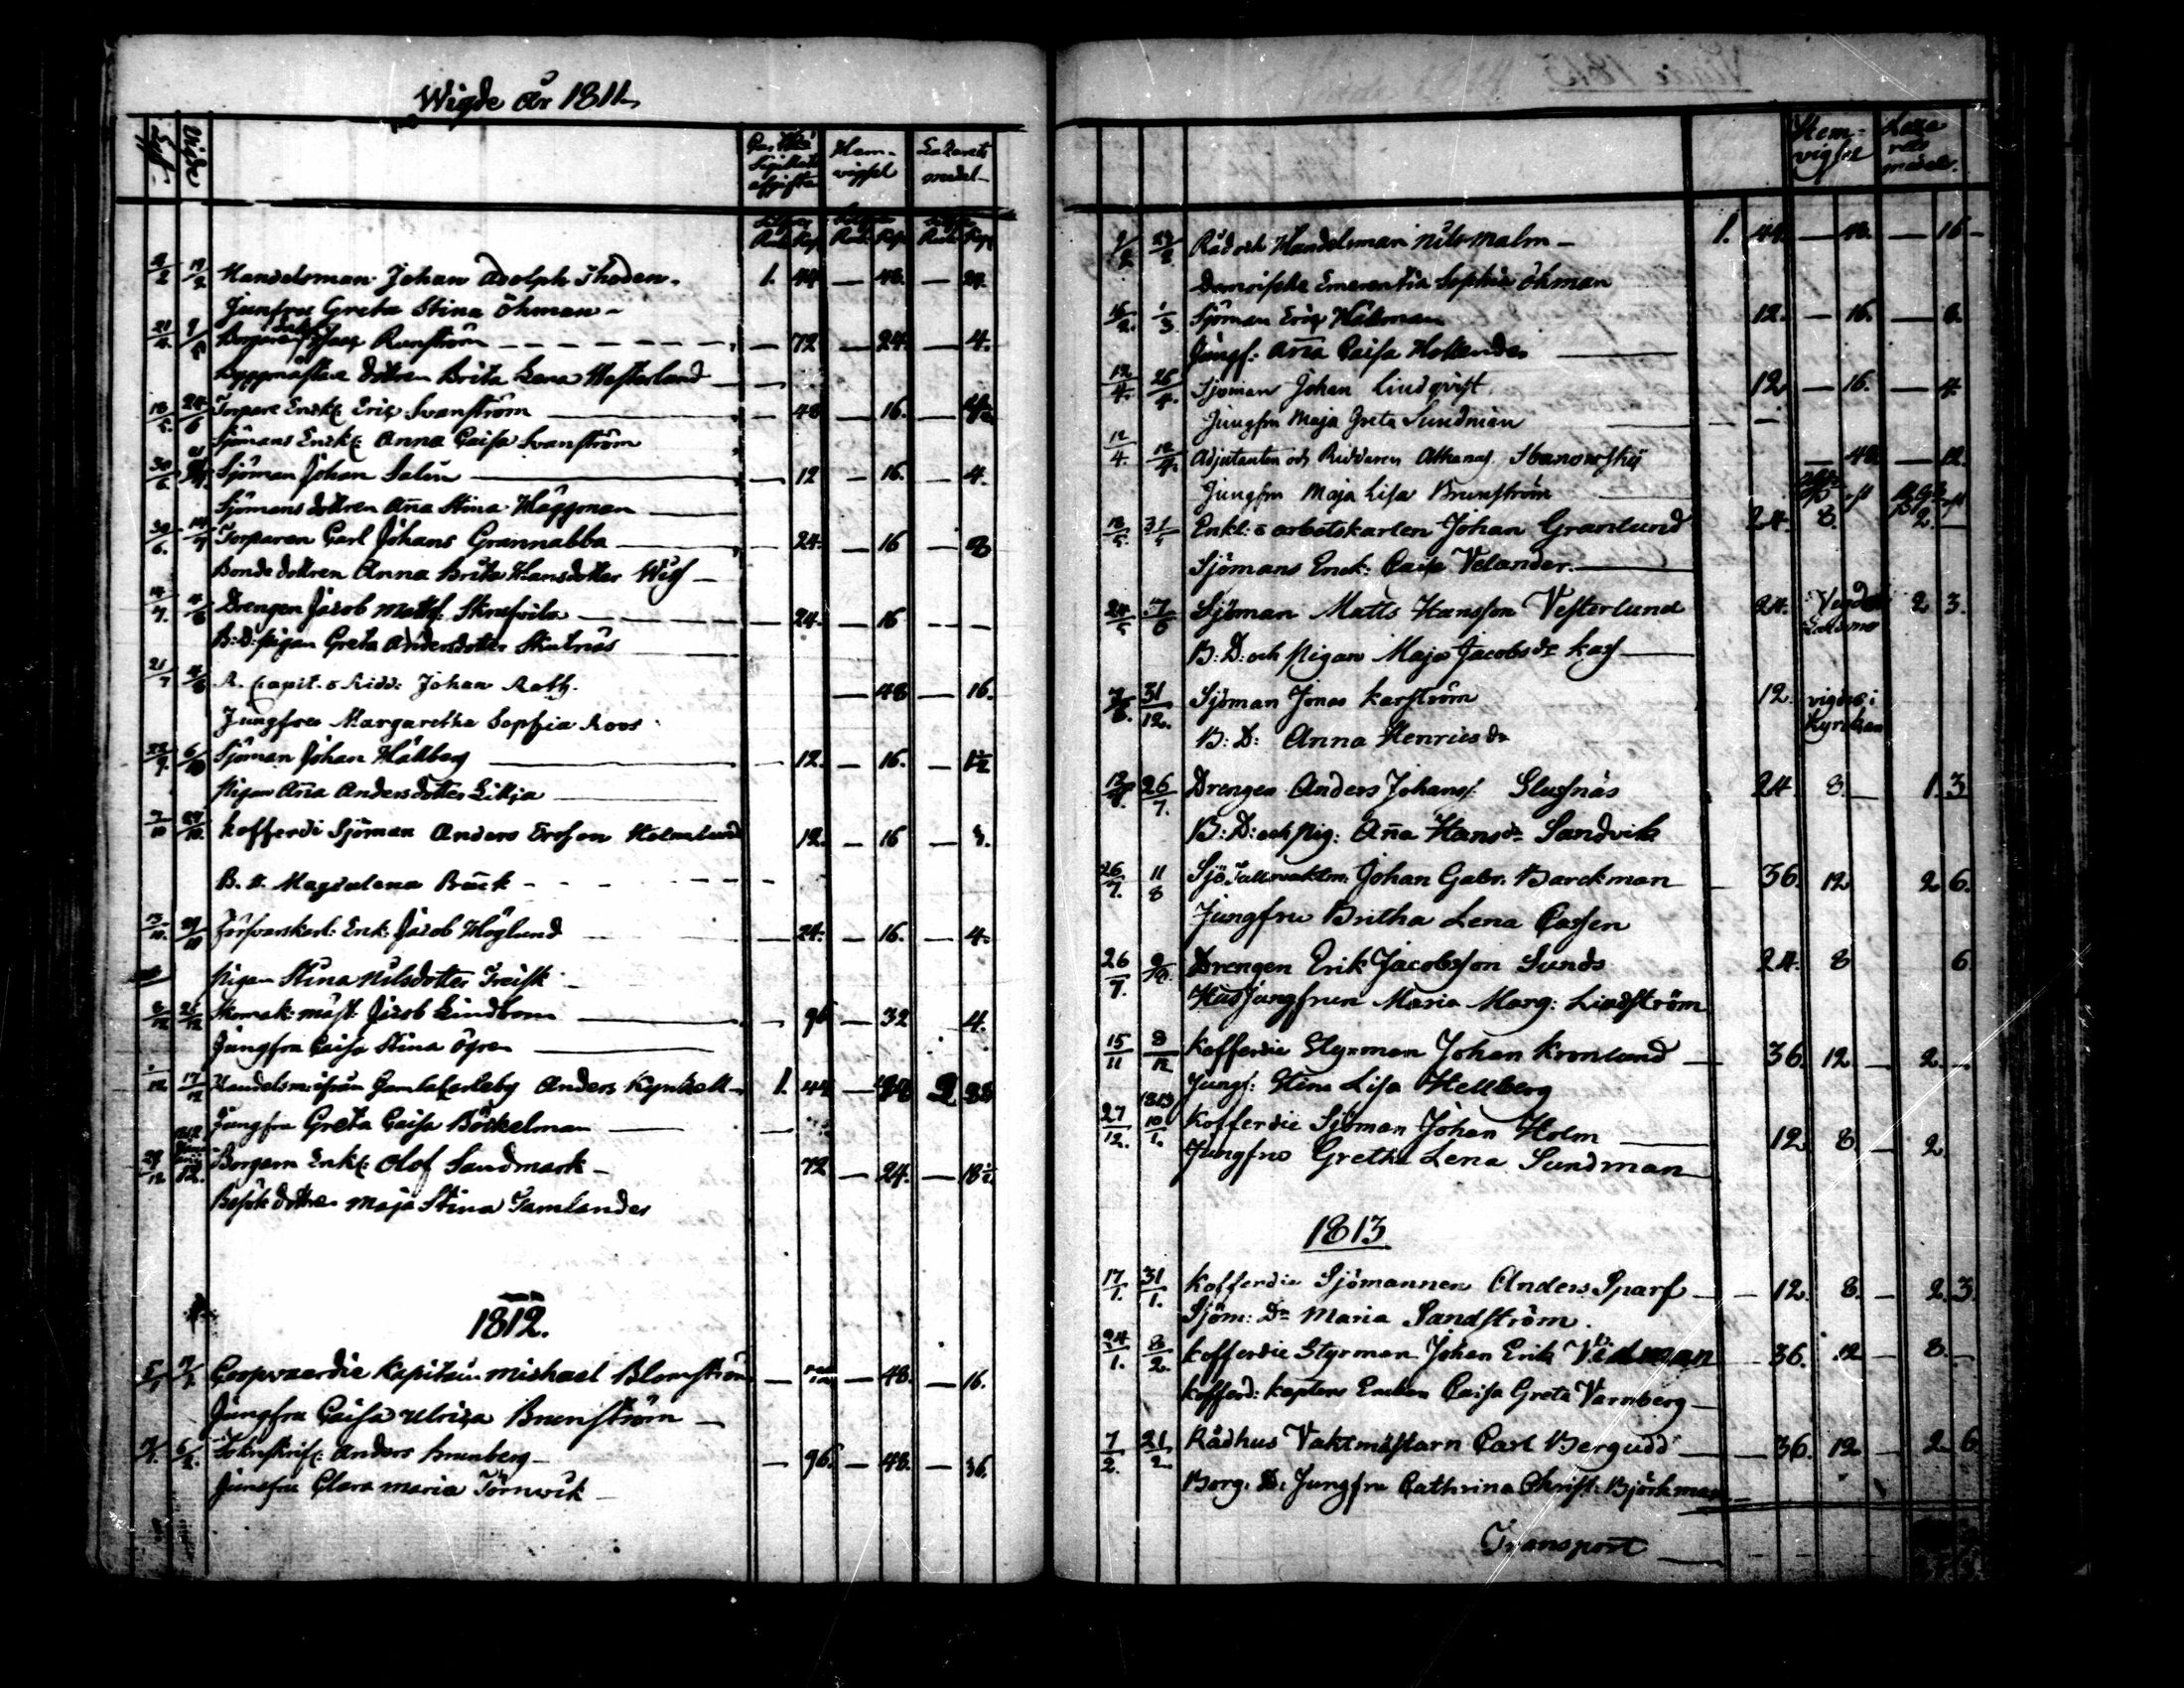 Wigde år 1811
Lyst Vigde
Hem- vigsel
Lazarets medel
2/2 19/2 Handelsman Johan Adolph Thoden. 1. 44 — 48. — 24.
Jungfru Greta Stina Öhman
Runström — 72 — 24. — 4.
Byggmästare dottren Brita Lena Westerlund
24/6 Torpare Enkl: Eriq Svanström — 48 — 16.
Sjömans Enkl: Anna Caisa Svanström
30/6 Sjöman Johan Salin — 12 — 16. — 4.
Sjömans dottren Aña Stina Häggman
30/6. 14/7 Torparen Carl Johans Grannabba — 24. — 16 — 8
Bonde dottren Anna Brita Hansdotter Wist
14/7. 4/8 Drengen Jacob Matts: Skrufvila — 24. — 16 — —
B: D: pigan Greta Andersdotter Skutnäs
21/7 4/8 R. Capit. o Ridd: Johan Roth. — 48 — 16.
Jungfru Margaretha Sophia Roos
Sjöman Johan Hällberg — 12. — 16. — 1½
Pigan Aña Andersdotter Lillja
7/10 27/10. Kofferdi Sjöman Anders Ersson Holmlund 12. — 16 — 3.
B. D. Magdalena Bäck
13/10. 29/10 Förfvarskarl: Enk: Jacob Höglund — 24. — 16. — 4.
Pigan Stina Nilsdotter Treisk
8/12 26/12 Skomak: mäst: Jacob Lindbom — 96 — 32 4.
Jungfru Caisa Stina Ögren
1/12. 17/12 Handelsm: ifrån Gamlakarleby Anders Kyntzell 1. 44
Jungfru Greta Caisa Böckelman
29/12 Borgarn Enkl: Olof Sandmark 72 — 24. — 18½
Besök dottren Maja Stina Jamlander
1812.
Coopvaardie Kapitain Michael Blomström — 48. — 16.
Jungfru Caisa Ulrica Brunström
6/2. Anders Brunberg — 96. — 48. — 36.
Jungfru Clara Maria Törnwik
Hem- vigsel Laza rets medel.
9/2 23/2 Råd och Handelsman Nils Malm 1. 44. — 48. — 16
Damoiselle Emerentia Sophia Öhman
16/2. 1/3. Sjöman Eriq Hällman 12. — 16. — 8.
Jungf: Aña Caisa Hollender
12/4. 26/4. Sjöman Johan Lindqvist 12 — 16. — 4
Jungfru Maja Greta Sundman
12/4. 12/4. Adjutanten och Riddaren Athanas. Ibanowskij — 48 — 12.
Jungfru Maja Lisa Brunström
31/5 Enkl: o arbetskarlen Johan Granlund 24. 8. 2. —
Sjömans Enck: Caisa Velander
24/5 7/6 Sjöman Matts Hansson Vesterlund 24. Vigde Larsmo 2 3.
B: D: och pigan Maja Jacobs Dr Kass
31/12. Sjöman Jonas Karström 12. vigde i Kyrckan
B: D: Anna Henrics Dr
26/7. Drengen Anders Johans: Slusnäs 24. 8. — 1. 3
B: D: och pig: Aña Hans Dr Sandvik
26/7. 11/8 Sjö Tullwaktm: Johan Gabr. Barckman 36. 12 2 6.
Jungfru Britha Lena Cassen
26/7. Drengen Erik Jacobsson Sunds 24. 8 6
Hus Jungfrun Maria Marg: Lindström
15/11 8/12 Kofferdie Styrman Johan Kronlund 36. 12 — 2. —
Jungf: Stina Lisa Hellberg
27/12. 1813 10/1. Kofferdie Sjöman Johan Holm 12. 8. — 2
Jungfru Gretha Lena Sundman
1813
17/1. 31/1. Kofferdie Sjömannen Anders Sparf 12. 8. — 2. 3.
Sjöm: Dr Maria Sandström.
24/1. 8/2. Kofferdie Styrman Johan Erik Vidman 36. 12 — 8. —
Kofferd: Kaptens Enckan Caisa Greta Varnberg
7/2. 21/2 Rådhus Vaktmästarn Carl Bergudd 36. 12 — 2 6
Borg: D: Jungfru Cathrina Christ: Björkman
Transport